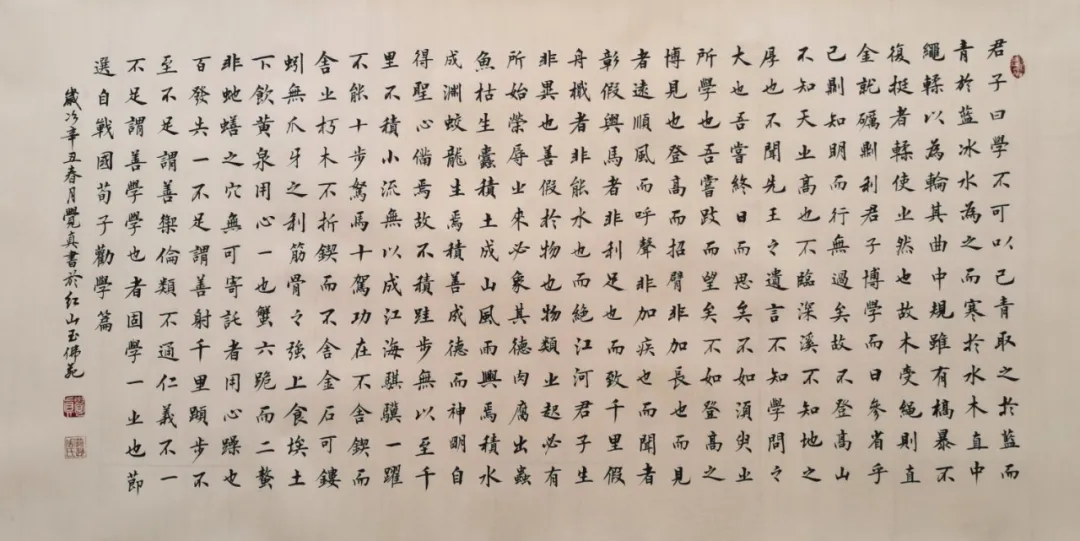 君子曰學不可以已青取之於藍而
青於藍冰水為之而寒於水木直中
繩輮以為輪其曲中規雖有槁暴不
復挺者輮使之然也故木受繩則直
金就礪則利君子博學而日參省乎
己則知明而行無過矣故不登高山
不知天之高也不臨深溪不知地之
厚也不聞先王之遺言不知學問之
大也吾嘗終日而思矣不如須臾之
所學也吾嘗跂而望矣不如登高之
博見也登高而招臂非加長也而見
者遠順風而呼聲非加疾也而聞者
彰假輿馬者非利足也而致千里假
舟檝者非能水也而絕江河君子生
非異也善假於物也物類之起必有
所始榮辱之來必象其德肉腐出蟲
魚枯生蠹積土成山風雨興焉積水
成淵蛟龍生焉積善成德而神明自
得聖心備焉故不積跬步無以至千
里不積小流無以成江海騏驥一躍
不能十步駑馬十駕功在不舍鍥而
舍之朽木不折鍥而不舍金石可鏤
蚓無爪牙之利筋骨之強上食埃土
下飲黃泉用心一也蟹六跪而二螯
非虵蟮之穴無可寄託者用心躁也
百發失一不足謂善射千里蹞步不
至不足謂善禦倫類不通仁義不一
不足謂善學學也者固學一之也節
選自戰國荀子勸學篇
歲次辛丑春月覺真書於紅山玉佛苑